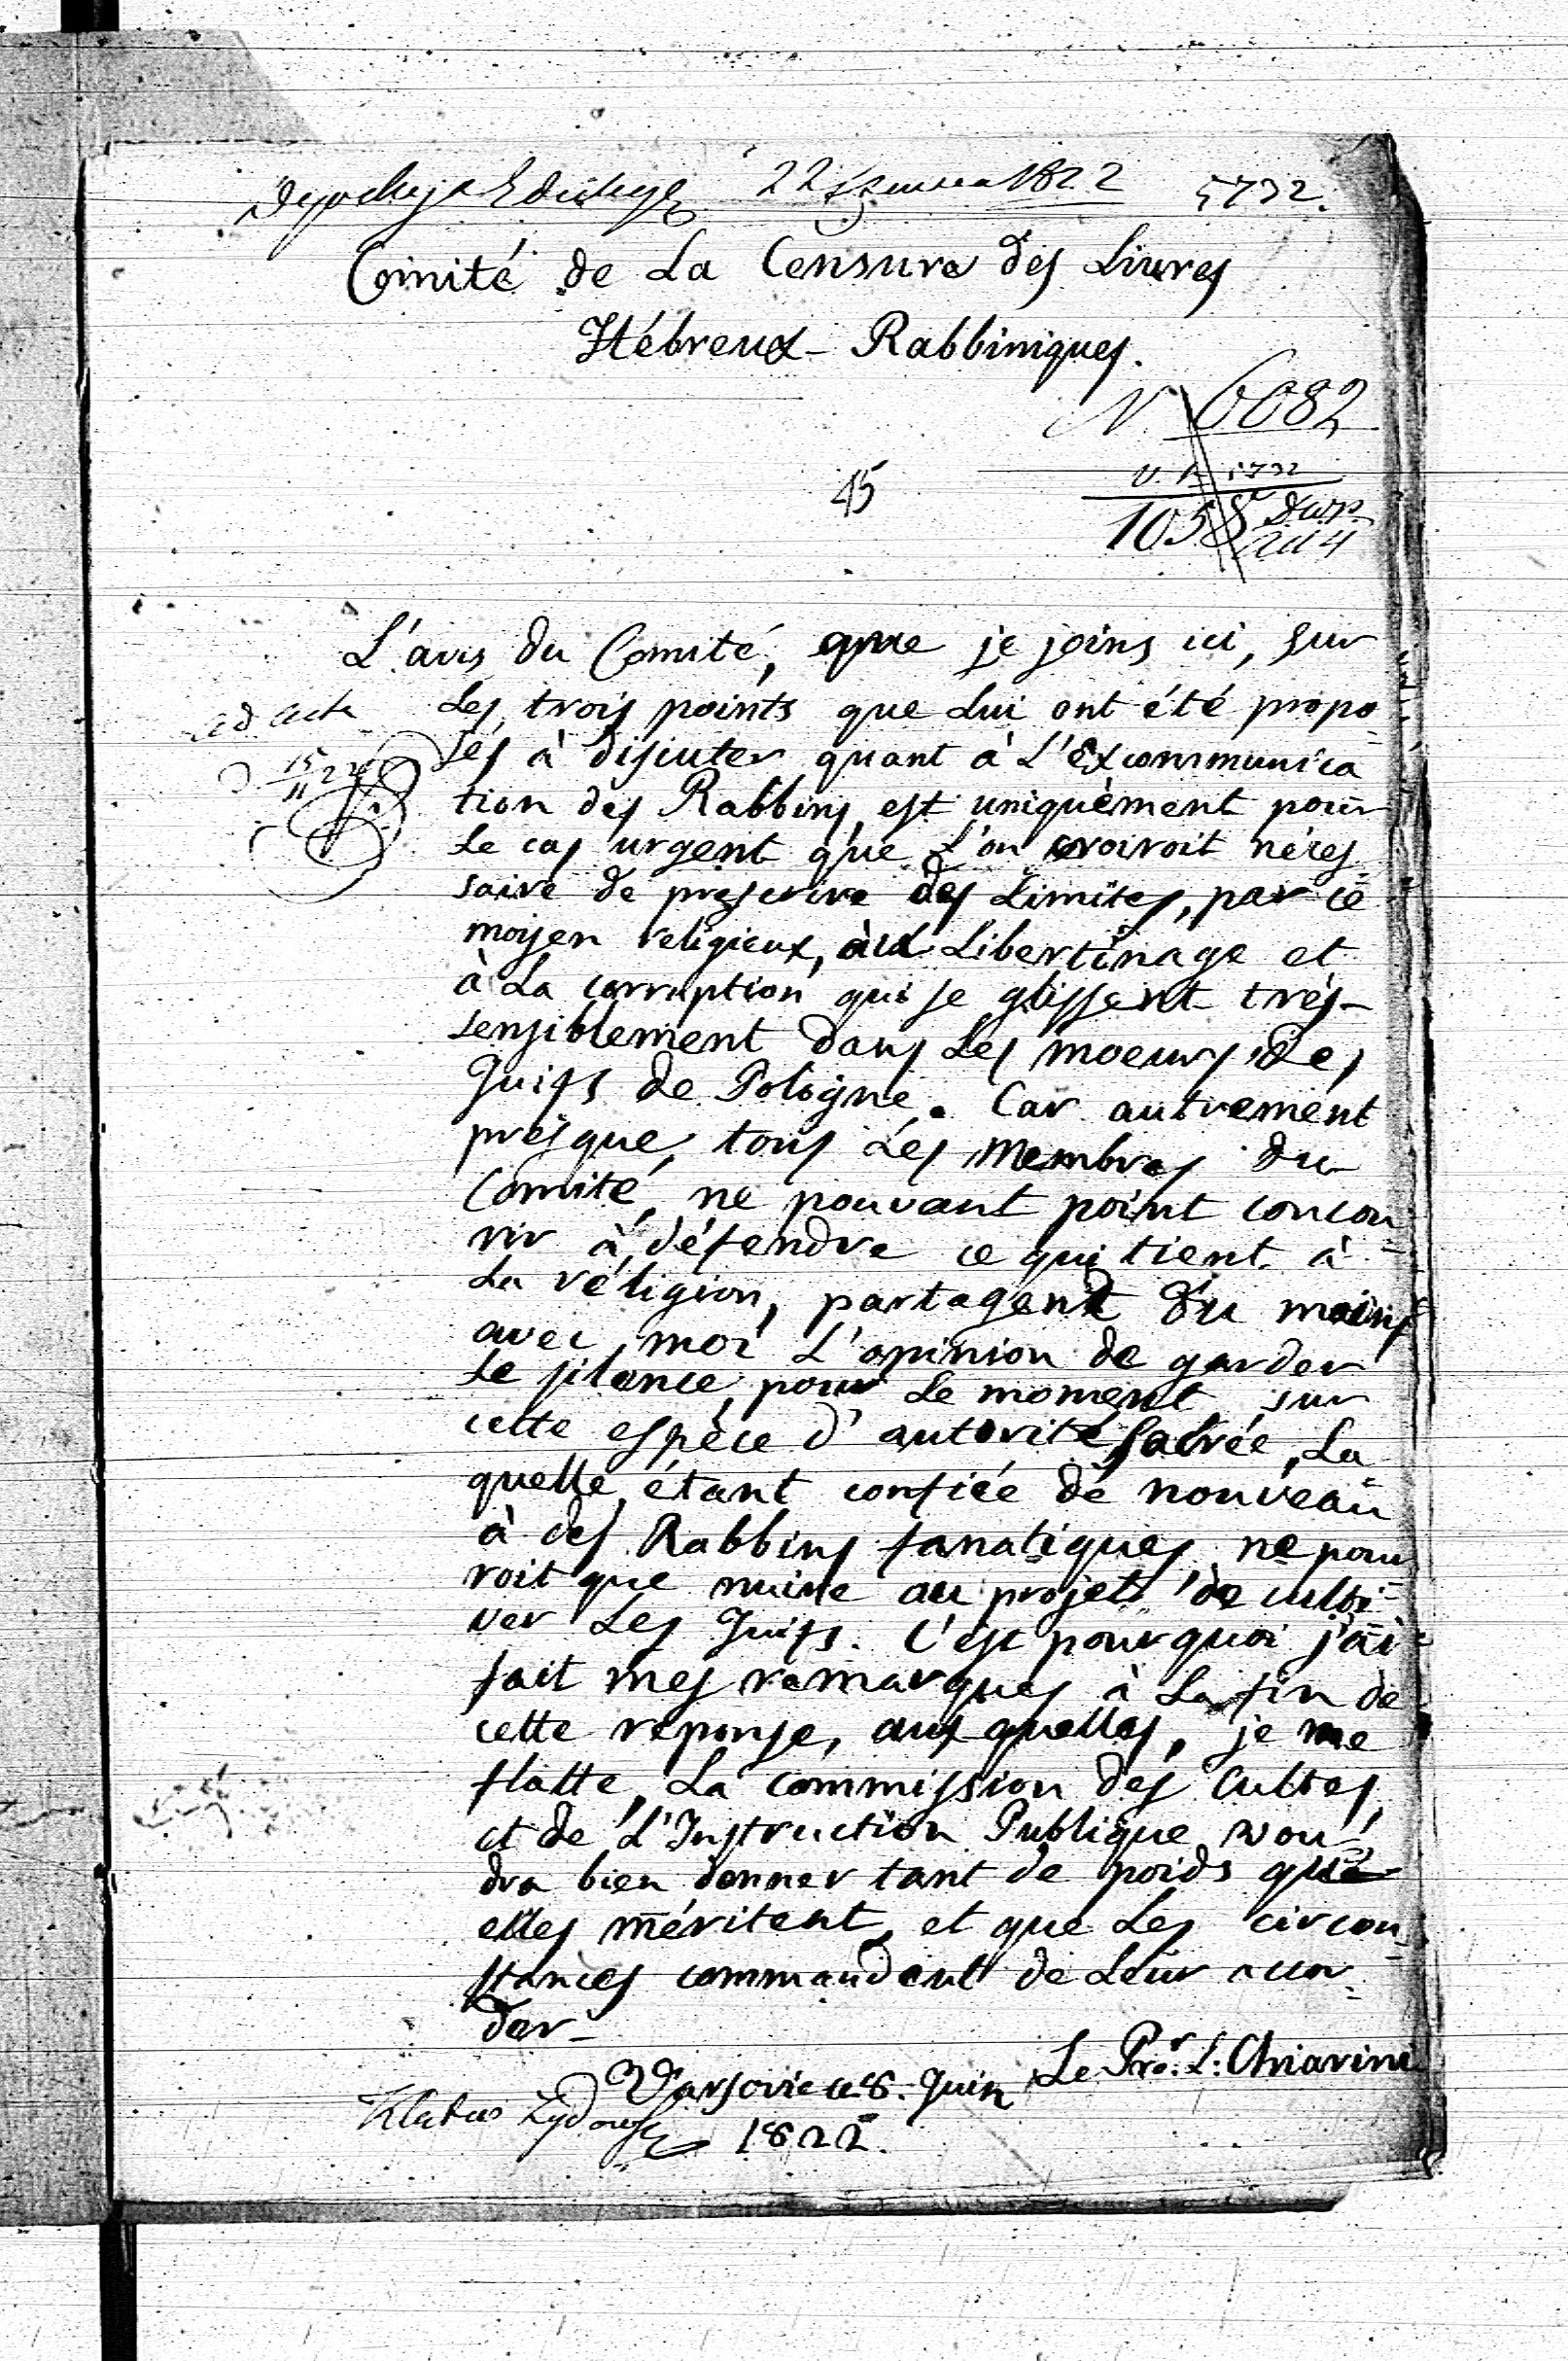 22 Czerwca 1822 5732.
Comité de La Censure des Livres
Hébreux-Rabbiniques.
N. 6082
45
5732
1058
ad 4
L'avis du Comité, que je joins ici, sur
ad acta
les trois points que lui ont été propo=
15
11 22
sés à discuter quant à L'Excommunica
tion des Rabbins, est uniquèment pour
Le cas urgent que L'on croiroit néces
saire de prescrire des Limites, par ce
moyen religieux, au Libertinage et
à La corruption qui se glissent trés-
sensiblement dans Les moeurs des
Juifs de Pologne. Car autrement
presque tous Les Membres du
Comité, ne pouvant point concou=
rir à défendre ce qui tient à
La réligion, partagent du moins
avec moi L'opinion de garder
Le silence, pour Le moment, sur
cette espèce d'autorité sacrée, La=
quelle étant confiée de nouveau
à des Rabbins fanatiques ne pour
roit que nuire au projet de culti=
ver Les Juifs. C'est pourquoi j'ai
fait mes remarques à La fin de
cette reponse, aux quelles, je me
flatte, La commission des Cultes,
et de L'Instruction Publique vou=
dra bien donner tant de poids que
elles méritent, et que Les circon=
stances commandent de Leur accor=
der-
Le Pro.r L: Chiarini
Varsovie ce 8. Juin
1822.